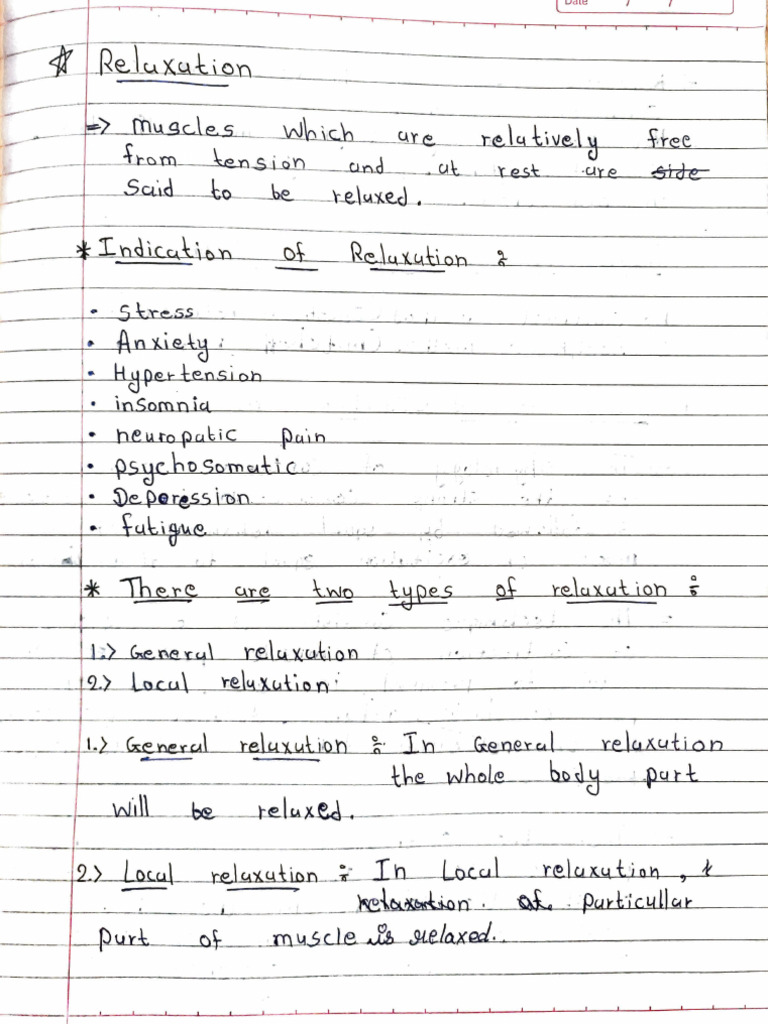 Date / /
☆ Relaxation
=> muscles which are relatively free
from tension and at rest are side
Said to be relaxed.
* Indication of Relaxation :
• Stress
• Anxiety
• Hypertension
• insomnia
• neuropatic pain
• psychosomatic
• Depression
• fatigue
* There are two types of relaxation :
1.> General relaxation
2.> Local relaxation
1.> General relaxation :- In General relaxation
the whole body part
will be relaxed.
2.> Local relaxation :- In Local relaxation,
relaxation of particullar
part of muscle is relaxed.